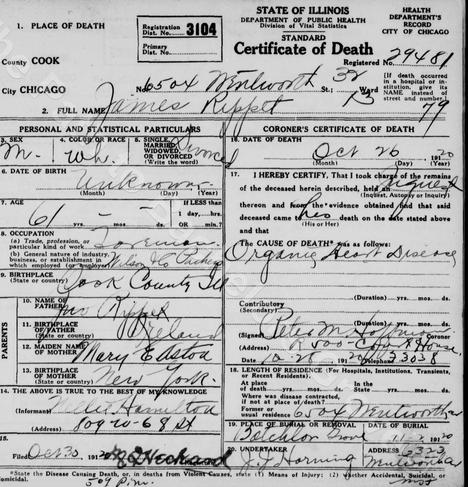 STATE OF ILLINOIS
DEPARTMENT OF PUBLIC HEALTH
Division of Vital Statistics
STANDARD
Certificate of Death
HEALTH
DEPARTMENT'S
RECORD
CITY OF CHICAGO
Registered No. 29481
1. PLACE OF DEATH
Registration
Dist. No. 3104
Primary
Dist. No.
County COOK
City CHICAGO
No. 6504 Wentworth St.; 32 Ward
(If death occurred
in a hospital or institution,
give its NAME instead of
street and number.)
2. FULL NAME James Rippet
PERSONAL AND STATISTICAL PARTICULARS
3. SEX M.
4. COLOR OR RACE Wh.
5. SINGLE, MARRIED, WIDOWED, OR DIVORCED Divorced
(Write the word)
6. DATE OF BIRTH
Unknown
(Month) (Day) (Year)
7. AGE 61 - -
If LESS than
1 day, hrs.
OR min.?
8. OCCUPATION
(a) Trade, profession, or
particular kind of work Foreman
(b) General nature of industry,
business, or establishment in
which employed (or employer) Wilson & Co
9. BIRTHPLACE
(State or country) Cook County Ill
PARENTS
10. NAME OF
FATHER Jno Rippet
11. BIRTHPLACE
OF FATHER
(State or country) Ireland
12. MAIDEN NAME
OF MOTHER Mary Easton
13. BIRTHPLACE
OF MOTHER
(State or country) New York.
14. THE ABOVE IS TRUE TO THE BEST OF MY KNOWLEDGE
(Informant) Hamilton
(Address) 809 W 68 St
15.
Filed Oct 30, 1920
CORONER'S CERTIFICATE OF DEATH
16. DATE OF DEATH
Oct 26 1920
(Month) (Day) (Year)
17. I HEREBY CERTIFY, That I took charge of the remains
of the deceased herein described, held an Inquest
(Inquest, Autopsy or Inquiry)
thereon and from the evidence obtained find that said
deceased came to his death on the date stated above
(His or Her)
and that
The CAUSE OF DEATH* was as follows:
Organic Heart Disease
(Duration) yrs. mos. ds.
Contributory
(Secondary)
(Duration) yrs. mos. ds.
(Signed) Peter M Hoffman
(Address) R 500
10-28 1920 Telephone
18. LENGTH OF RESIDENCE (For Hospitals, Institutions, Transients,
or Recent Residents).
At place
of death yrs. mos. ds.
In the
State yrs. mos. ds.
Where was disease contracted,
if not at place of death?
Former or
usual residence 6504 Wentworth
19. PLACE OF BURIAL OR REMOVAL
DATE OF BURIAL
Batchlor Grove
20. UNDERTAKER
J. J. Horning
6323 Wentworth Av
*State the Disease Causing Death, or, in deaths from Violent Causes, state (1) Means of Injury; (2) Whether Accidental, Suicidal, or